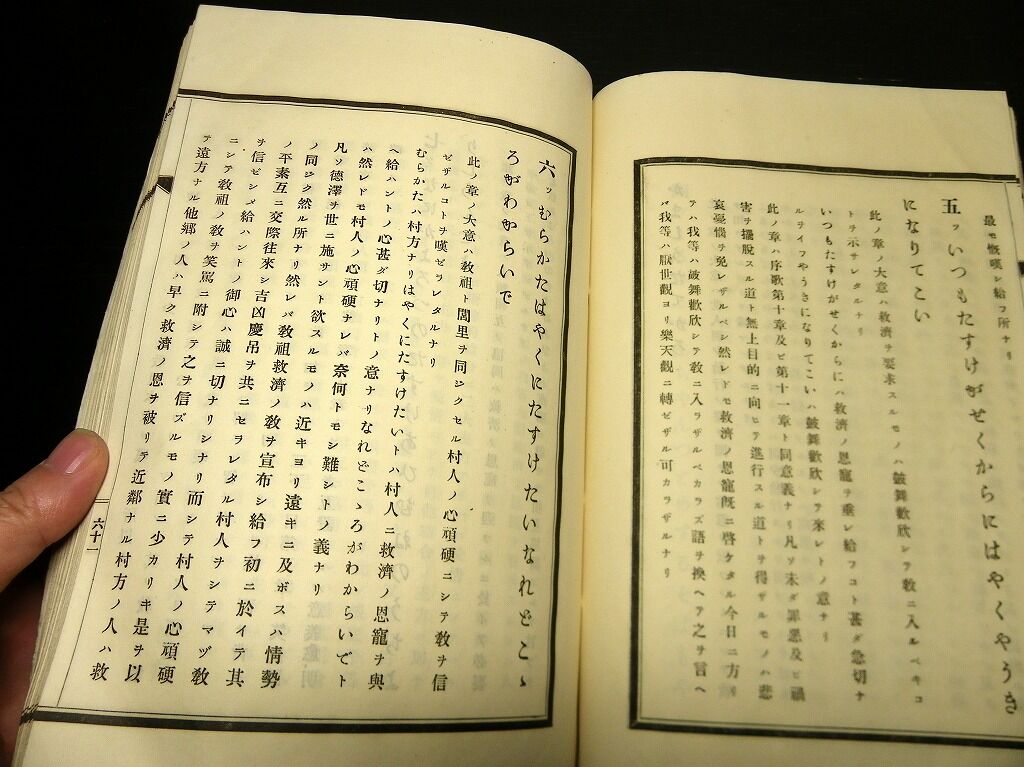 最モ慨嘆シ給フ所ナリ
五ッいつもたすけがせくからにはやくやうき
になりてこい
此ノ章ノ大意ハ救濟ヲ要求スルモノハ皷舞歡欣シテ敎ニ入ルベキコ
トヲ示サレタルナリ
いつもたすけがせくからにハ救濟ノ恩寵ヲ垂レ給フコト甚ダ急切ナ
ルヲイフやうきになりてこいハ皷舞歡欣シテ來レトノ意ナリ
此ノ章ハ序歌第十章及ビ第十一章ト同意義ナリ凡ソ未ダ罪惡及ビ禍
害ヲ擺脫スル道ト無上目的ニ向ヒテ進行スル道トヲ得ザルモノハ悲
哀憂惱ヲ免レザルベシ然レドモ救濟ノ恩寵既ニ啓ケタル今日ニ方リ
テハ我等ハ皷舞歡欣シテ敎ニ入ラザルベカラズ語ヲ換ヘテ之ヲ言ヘ
バ我等ハ厭世觀ヨリ樂天觀ニ轉ゼザル可カラザルナリ
六ッむらかたはやくにたすけたいなれどこゝ
ろがわからいで
此ノ章ノ大意ハ敎祖ト閭里ヲ同ジクセル村人ノ心頑硬ニシテ敎ヲ信
ゼザルコトヲ嘆ゼラレタルナリ
むらかたハ村方ナリはやくにたすけたいトハ村人ニ救濟ノ恩寵ヲ與
ヘ給ハントノ心甚ダ切ナリトノ意ナリなれどこゝろがわからいでト
ハ然レドモ村人ノ心頑硬ナレバ奈何トモシ難シトノ義ナリ
凡ソ德澤ヲ世ニ施サント欲スルモノハ近キヨリ遠キニ及ボスハ情勢
ノ同ジク然ル所ナリ然レバ敎祖救濟ノ敎ヲ宣布シ給フ初ニ於イテ其
ノ平素互ニ交際往來シ吉凶慶吊ヲ共ニセラレタル村人ヲシテマヅ敎
ヲ信ゼシメ給ハントノ御心ハ誠ニ切ナリシナリ而シテ村人ノ心頑硬
ニシテ敎祖ノ敎ヲ笑罵ニ附シテ之ヲ信ズルモノ實ニ少カリキ是ヲ以
テ遠方ナル他鄕ノ人ハ早ク救濟ノ恩ヲ被リテ近鄰ナル村方ノ人ハ救
六十一